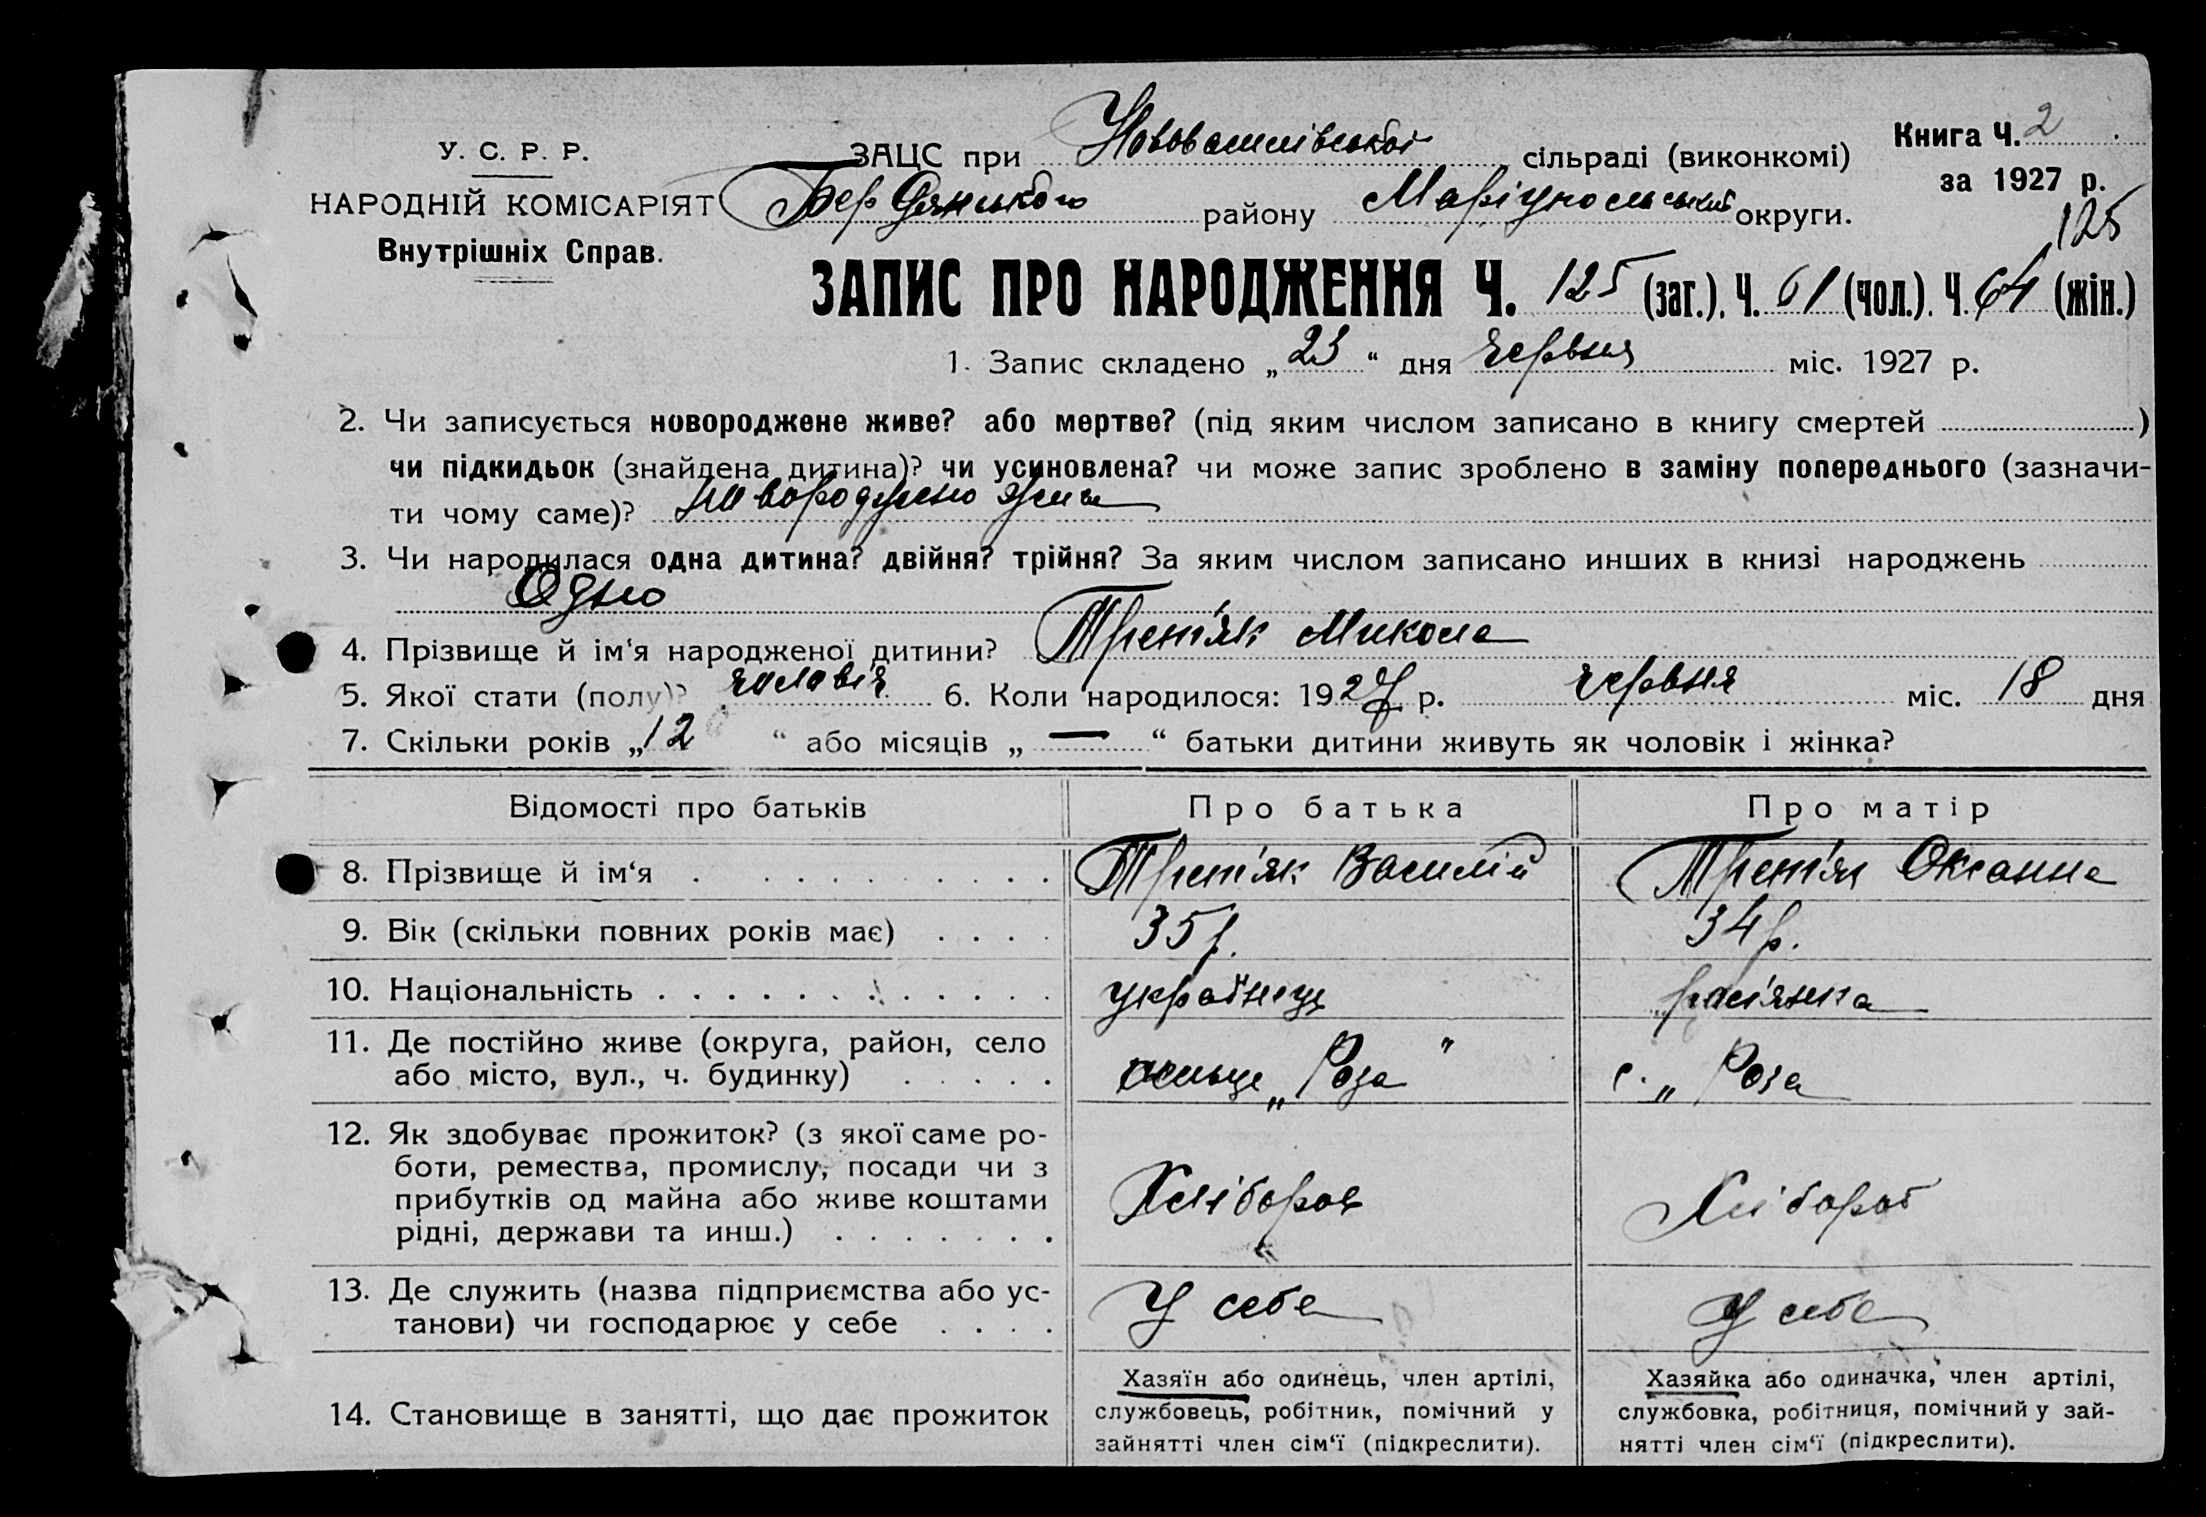 У. С. Р. Р.
НАРОДНІЙ КОМІСАРІЯТ
Внутрішніх Справ.
ЗАЦС при Нововасилівській сільраді (виконкомі)
Бердянського району Маріупольської округи.
Книга Ч. 2
за 1927 р.
125
ЗАПИС ПРО НАРОДЖЕННЯ Ч. 125 (заг.). Ч. 61 (чол.). Ч. 64 (жін.)
1. Запис складено „23“ дня червня міс. 1927 р.
2. Чи записується новороджене живе? або мертве? (під яким числом записано в книгу смертей )
чи підкидьок (знайдена дитина)? чи усиновлена? чи може запис зроблено в заміну попереднього (зазначи-
ти чому саме)? новороджено живе
3. Чи народилася одна дитина? двійня? трійня? За яким числом записано инших в книзі народжень
Одно
4. Прізвище й ім'я народженої дитини? Трет'як Микола
5. Якої стати (полу)? 6. Коли народилося: 1927 р. червня міс. 18 дня
7. Скільки років „12“ або місяців „—“ батьки дитини живуть як чоловік і жінка?
Відомості про батьків Про батька Про матір
8. Прізвище й ім'я Трет'як Василій Трет'як Оксанна
9. Вік (скільки повних років має) 35 р. 34 р.
10. Національність українець росіянка
11. Де постійно живе (округа, район, село
або місто, вул., ч. будинку) „Роза“ с. „Роза
12. Як здобуває прожиток? (з якої саме ро-
боти, ремества, промислу, посади чи з
прибутків од майна або живе коштами
рідні, держави та инш.) Хлібороб Хлібороб
13. Де служить (назва підприємства або ус-
танови) чи господарює у себе У себе У себе
14. Становище в занятті, що дає прожиток
Хазяїн або одинець, член артілі,
службовець, робітник, помічний у
зайнятті член сім'ї (підкреслити).
Хазяйка або одиначка, член артілі,
службовка, робітниця, помічний у зай-
нятті член сім'ї (підкреслити).